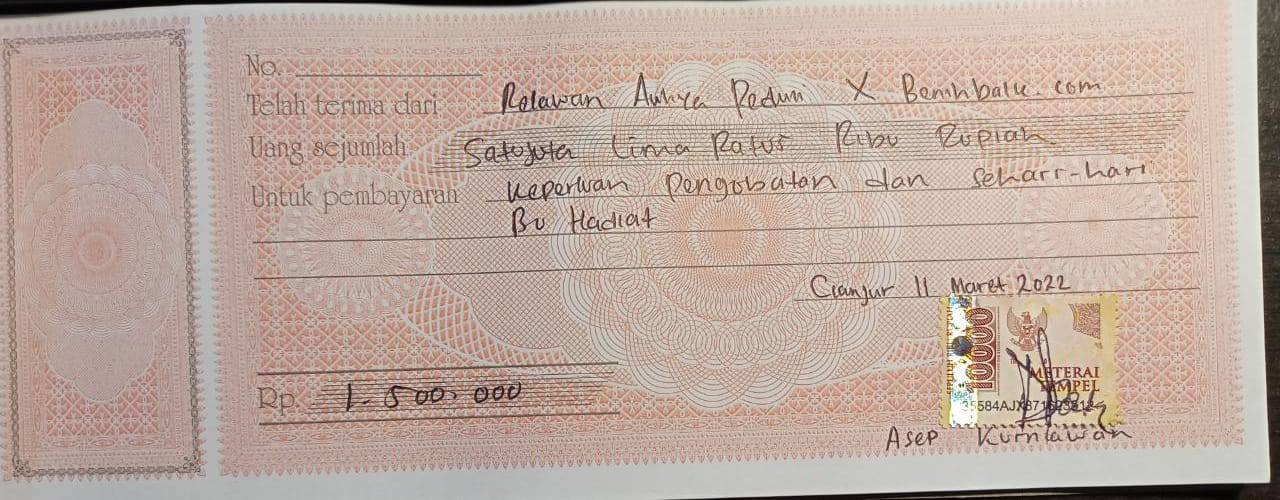 No.
Telah terima dari Relawan Auliya Peduli X Benihbaik.com
Uang sejumlah Satu juta Lima Ratus Ribu Rupiah
Untuk pembayaran Keperluan Pengobatan dan sehari-hari
Bu Hadiat
Cianjur 11 Maret 2022
10000
METERAI
TEMPEL
Rp. 1 500.000
Asep Kurniawan